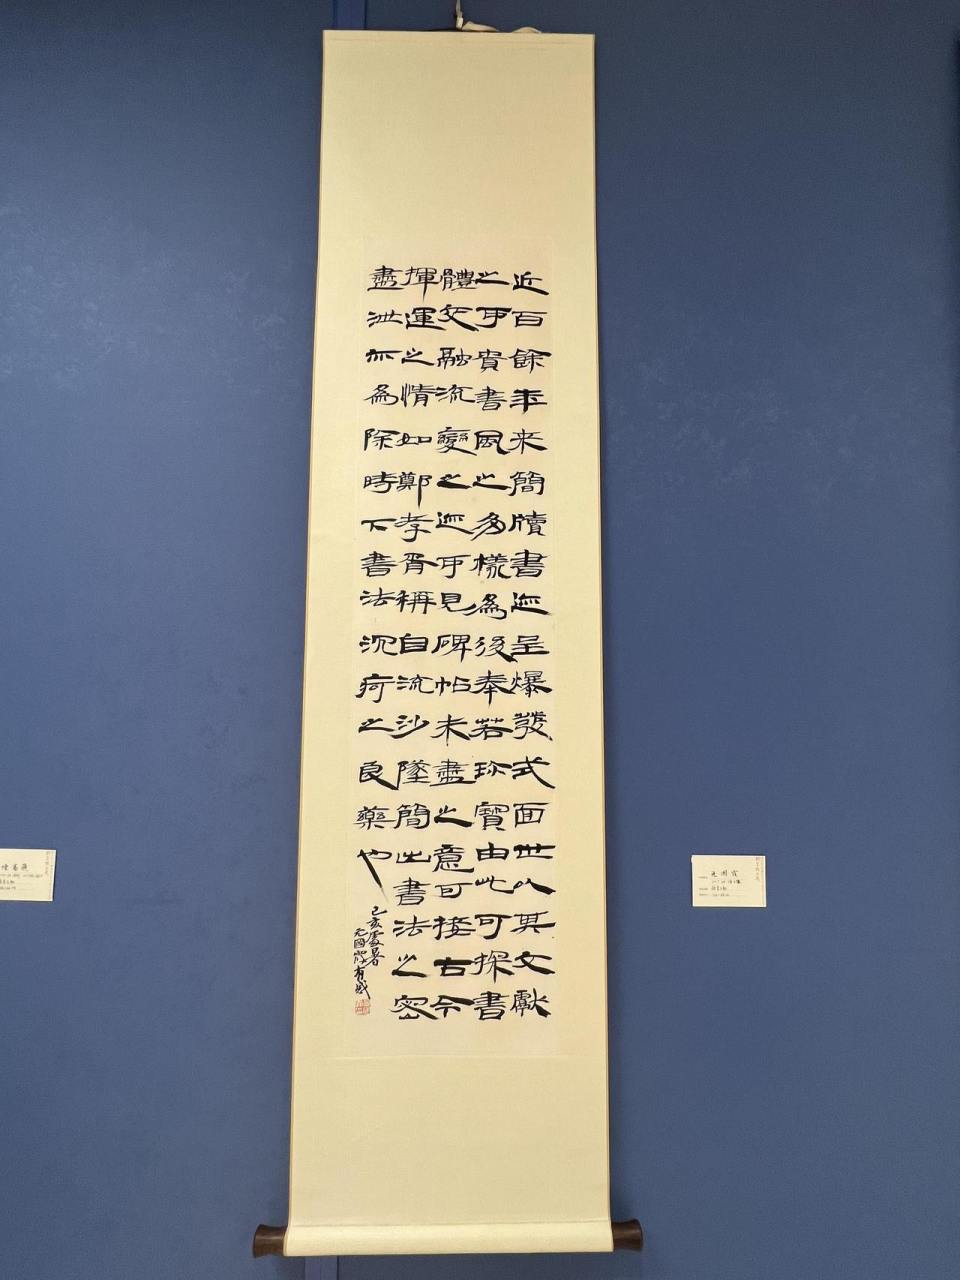 近百餘年来簡牘書迹呈爆發式面世以其文獻
之可貴書風之多樣為後奉若珍寶由此可探書
體交融流變之迹可見碑帖未盡之意可接古今
揮運之情如鄭孝胥稱自流沙墜簡出書法之密
盡泄亦為除時下書法沉疴之良藥也
己亥處暑
元國霞有感
元國霞